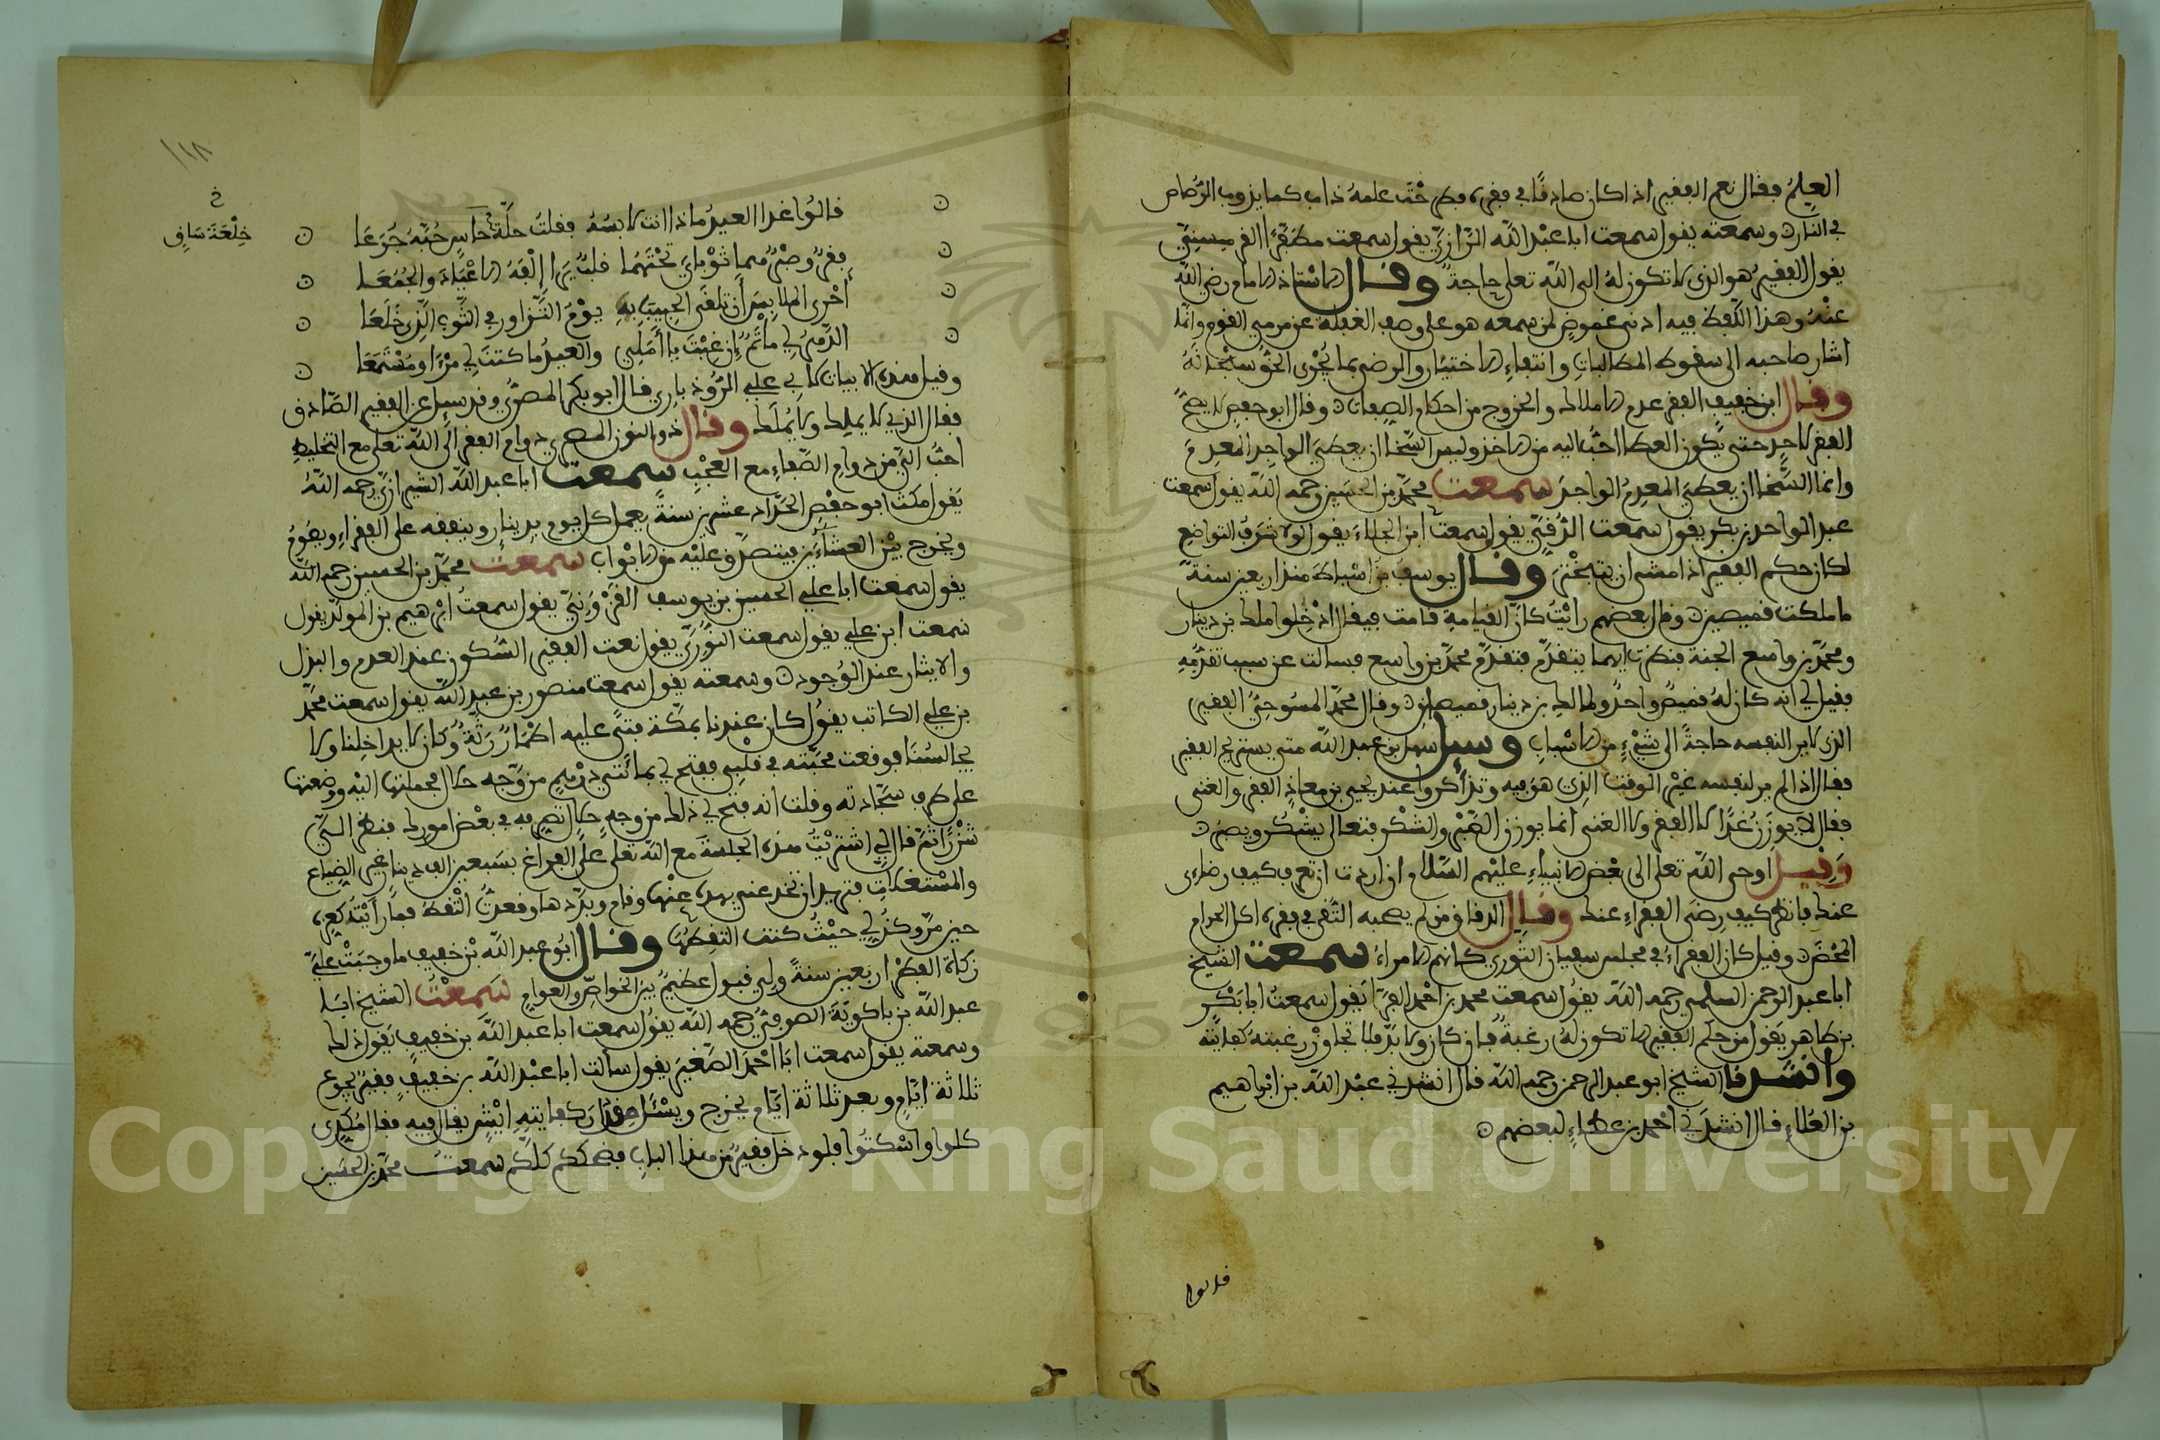 العلم فقال نعم الفقير اذا كان صادقا في فقره فطرحت علمه ذاب كما يذوب الرصاص
في النار وسمعته يقول سمعت ابا عبد الله الرازي يقول سمعت مظفرا القرميسيني
يقول الفقير هو الذي لا تكون له الى الله تعلى حاجة وقال الاستاذ الامام رضي الله
عنه وهذا اللفظ فيه ادنى غموض لمن سمعه هو على وصف الغفلة عن مرمى القوم وانما
اشار صاحبه الى سقوط المطالبات وانتفاء الاختيار والرضى بما يجري الحق سبحانه
وقال ابن خفيف الفقر عدم الاملاك والخروج من احكام الصفات وقال ابو حفص لا يصح
الفقر لاحد حتى يكون العطا احب اليه من الاخذ وليس السخا ان يعطي الواجد المعدم
وانما السخا ان يعطي المعدم الواجد سمعت محمد بن الحسين رحمه الله يقول سمعت
عبد الواحد بن بكر يقول سمعت الدقي يقول سمعت ابن الجلاء يقول لولا شرف التواضع
لكان حكم الفقير اذا مشى ان يتبختر وقال يوسف بن اسباط منذ اربعين سنة
ما ملكت قميصين وقال بعضهم رايت كان القيامة قامت فيقال ادخلوا ملك بن دينار
ومحمد بن واسع الجنة فنظرت ايهما يتقدم فتقدم محمد بن واسع فسالت عن سبب تقدمه
فقيل لي انه كان له قميص واحد ولمالك بن دينار قميصان وقال محمد المسوحي الفقير
الذي لا يرى لنفسه حاجة الى شيء من الاسباب وسيل سهل بن عبد الله متى يستريح الفقير
فقال اذا لم ير لنفسه غير الوقت الذي هو فيه وتذاكروا عند يحيى بن معاذ الفقر والغنى
فقال لا يوزن غدا لا الفقر ولا الغنى انما يوزن الصبر والشكر فتعالى يشكر ويصبر
وقيل اوحى الله تعلى الى بعض الانبياء عليهم السلام ان اردت ان تعرف كيف رضاءى
عنك فانظر كيف رضى الفقراء عنك وقال الدقاق من لم يصحبه التقى في فقره اكل الحرام
المحض وقيل كان الفقراء في مجلس سفيان الثوري كانهم الامراء سمعت الشيخ
ابا عبد الرحمن السلمي رحمه الله يقول سمعت محمد بن احمد الفرا يقول سمعت ابا بكر
بن طاهر يقول من حكم الفقير الا تكون له رغبة فان كان ولا بد فلا تجاوز رغبته كفايته
وانشدنا الشيخ ابو عبد الرحمن رحمه الله قال انشدني عبد الله بن ابراهيم
بن العلاء قال انشدني احمد بن عطاء لبعضهم
قالوا
١١٨
خ
خلعة ساق
قالوا غدا العيد ماذا انت لابسه فقلت حلة حاس حبه جرعا
فقر وصبر هما ثوباي تحتهما قلب يرى الفه الاعياد والجمعا
احرى الملابس أن تلقى الحبيب به يوم التزاور في الثوب الذي خلعا
الدهر لي ماتم إن غبت يا أملي والعيد ما كنت لي مرءا ومستمعا
وقيل هذه الابيات لابي علي الروذباري قال ابو بكر المصري وقد سيل عن الفقير الصادق
فقال الذي لا يملك ولا يملك وقال ذو النون المصري دوام الفقر الى الله تعلى مع التخليط
احب الي من دوام الصفاء مع العجب سمعت ابا عبد الله الشيرازي رحمه الله
يقول مكث ابو حفص الحداد عشرين سنة يعمل كل يوم بدينار وينفقه على الفقراء ويصوم
ويخرج بين العشاءين فيتصدق عليه من الابواب سمعت محمد بن الحسين رحمه الله
يقول سمعت ابا علي الحسين بن يوسف القزويني يقول سمعت ابرهيم بن المولد يقول
سمعت ابن علي يقول سمعت النوري يقول نعت الفقير السكون عند العدم والبذل
والايثار عند الوجود وسمعته يقول سمعت منصور بن عبد الله يقول سمعت محمد
بن علي الكاتب يقول كان عندنا بمكة فتى عليه اطمار رثة وكان لا يداخلنا ولا
يجالسنا فوقعت محبته في قلبي ففتح لي بمائتي درهم من وجه حلال فحملتها اليه ووضعتها
على طرف سجادته وقلت انه فتح لي ذلك من وجه حلال تصرفه في بعض امورك فنظر الي
شزرا ثم قال لي اشتريت هذه الجلسة مع الله تعلى على الفراغ بسبعين الف دينار غير الضياع
والمستغلات فتريد ان تخدعني بهذه عنها وقام وبددها وقعدت التقط فما رأيت كعزه
حين مر وكذلي حيث كنت التقطها وقال ابو عبد الله بن خفيف ما وجبت علي
زكاة الفطر اربعين سنة ولي قبول عظيم بين الخواص والعوام سمعت الشيخ ابا
عبد الله بن باكوية الصوفي رحمه الله يقول سمعت ابا عبد الله بن خفيف يقول ذلك
وسمعته يقول سمعت ابا احمد الصغير يقول سالت ابا عبد الله بن خفيف فقير يجوع
ثلاثة ايام وبعد ثلاثة ايام يخرج ويسئل مقدار كفايته ايش يقال فيه فقال مكدى
كلوا واسكتوا فلو دخل فقير من هذا الباب فضحكم كلكم سمعت محمد بن الحسين
Copyright © King Saud University